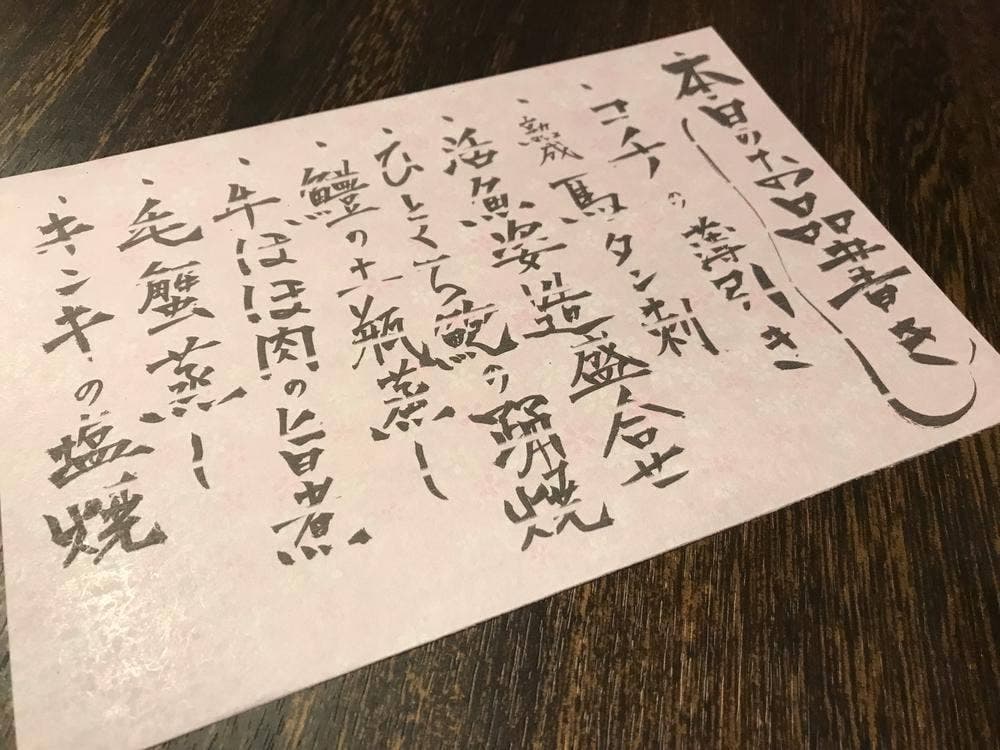 本日のお品書き
・コチの薄引き
・熟成馬タン刺
・活魚姿造盛合せ
・ひとくち鮑の踊焼
・鱧の土瓶蒸し
・牛ほほ肉の旨煮
・毛蟹蒸し
・キンキの塩焼